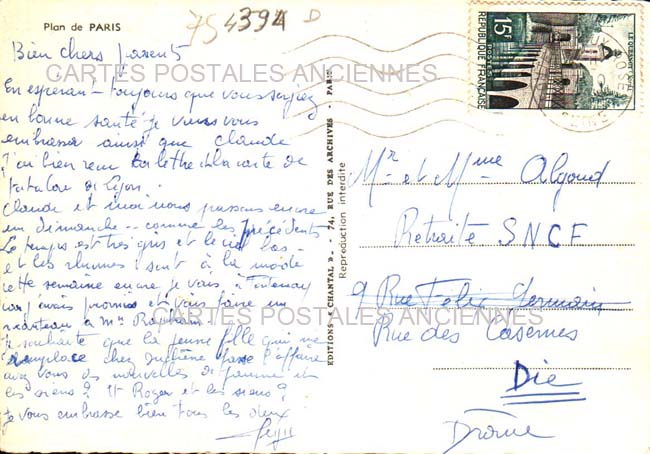 Plan de PARIS
754394 D
Bien chers parents
En esperant toujours que vous soyiez
en bonne santé je viens vous
embrasser ainsi que Claude
J'ai bien reçu ta lettre et la carte de
de Lyon.
Claude et moi nous passons encore
un dimanche comme les précédents
Le temps est très gris et le ciel bas
et les rhumes sont à la mode
cette semaine encore je vais à Fontenay
car j'avais promis et vais faire un
manteau à Mme
Je souhaite que la jeune fille qui me
remplace chez fasse l'affaire
avez vous des nouvelles de et
les siens? Et Roger et les siens?
Je vous embrasse bien tous les deux
EDITIONS CHANTAL - 74, RUE DES ARCHIVES - PARIS
Reproduction interdite
15F
REPUBLIQUE FRANÇAISE
POSTES
LE QUESNOY
Mr et Mme Algoud
Retraité SNCF
9 Rue Félix Germain
Rue des Casernes
Die
Drôme
CARTES POSTALES ANCIENNES
CARTES POSTALES ANCIENNES